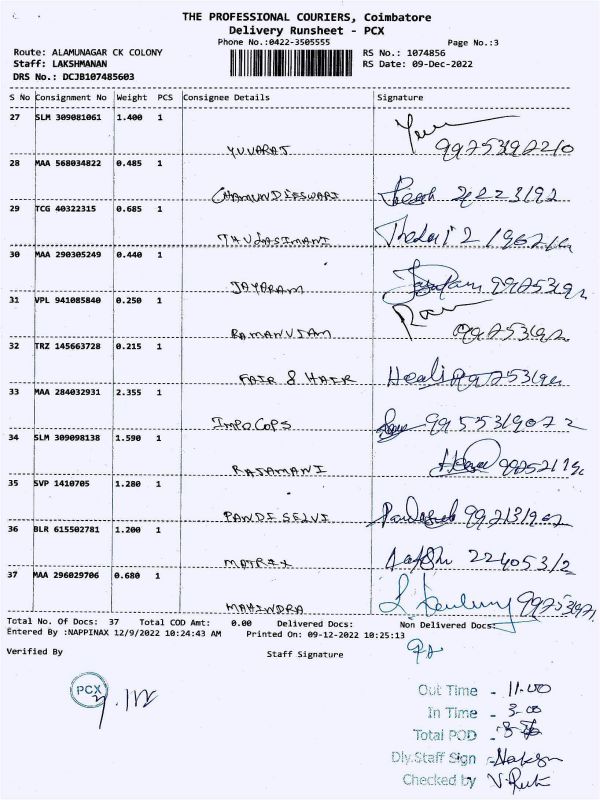 THE PROFESSIONAL COURIERS, Coimbatore
Delivery Runsheet - PCX
Phone No.:0422-3505555
Page No.:3
Route: ALAMUNAGAR CK COLONY
RS No.: 1074856
Staff: LAKSHMANAN
RS Date: 09-Dec-2022
DRS No.: DCJB107485603
S No Consignment No Weight PCS Consignee Details Signature
27 SLM 309081061 1.400 1
YUVARAJ
28 MAA 568034822 0.485 1
CHAMUNDIESWARI
29 TCG 40322315 0.685 1
THULASIMANI
30 MAA 290305249 0.440 1
JAYARAM
31 VPL 941085840 0.250 1
RAMANUJAM
32 TRZ 145663728 0.215 1
FAIR & HAIR
33 MAA 284032931 2.355 1
IMPOCOPS 9955319072
34 SLM 309098138 1.590 1
RAJAMANI
35 SVP 1410705 1.280 1
PANDI SELVI
36 BLR 615502781 1.200 1
MATRIX
37 MAA 296029706 0.680 1
MAHINDRA
Total No. Of Docs: 37 Total COD Amt: 0.00 Delivered Docs: Non Delivered Docs:
Entered By :NAPPINAX 12/9/2022 10:24:43 AM Printed On: 09-12-2022 10:25:13
Verified By Staff Signature
PCX
Out Time - 11.00
In Time - 3-00
Total POD -
Dly.Staff Sign -
Checked by